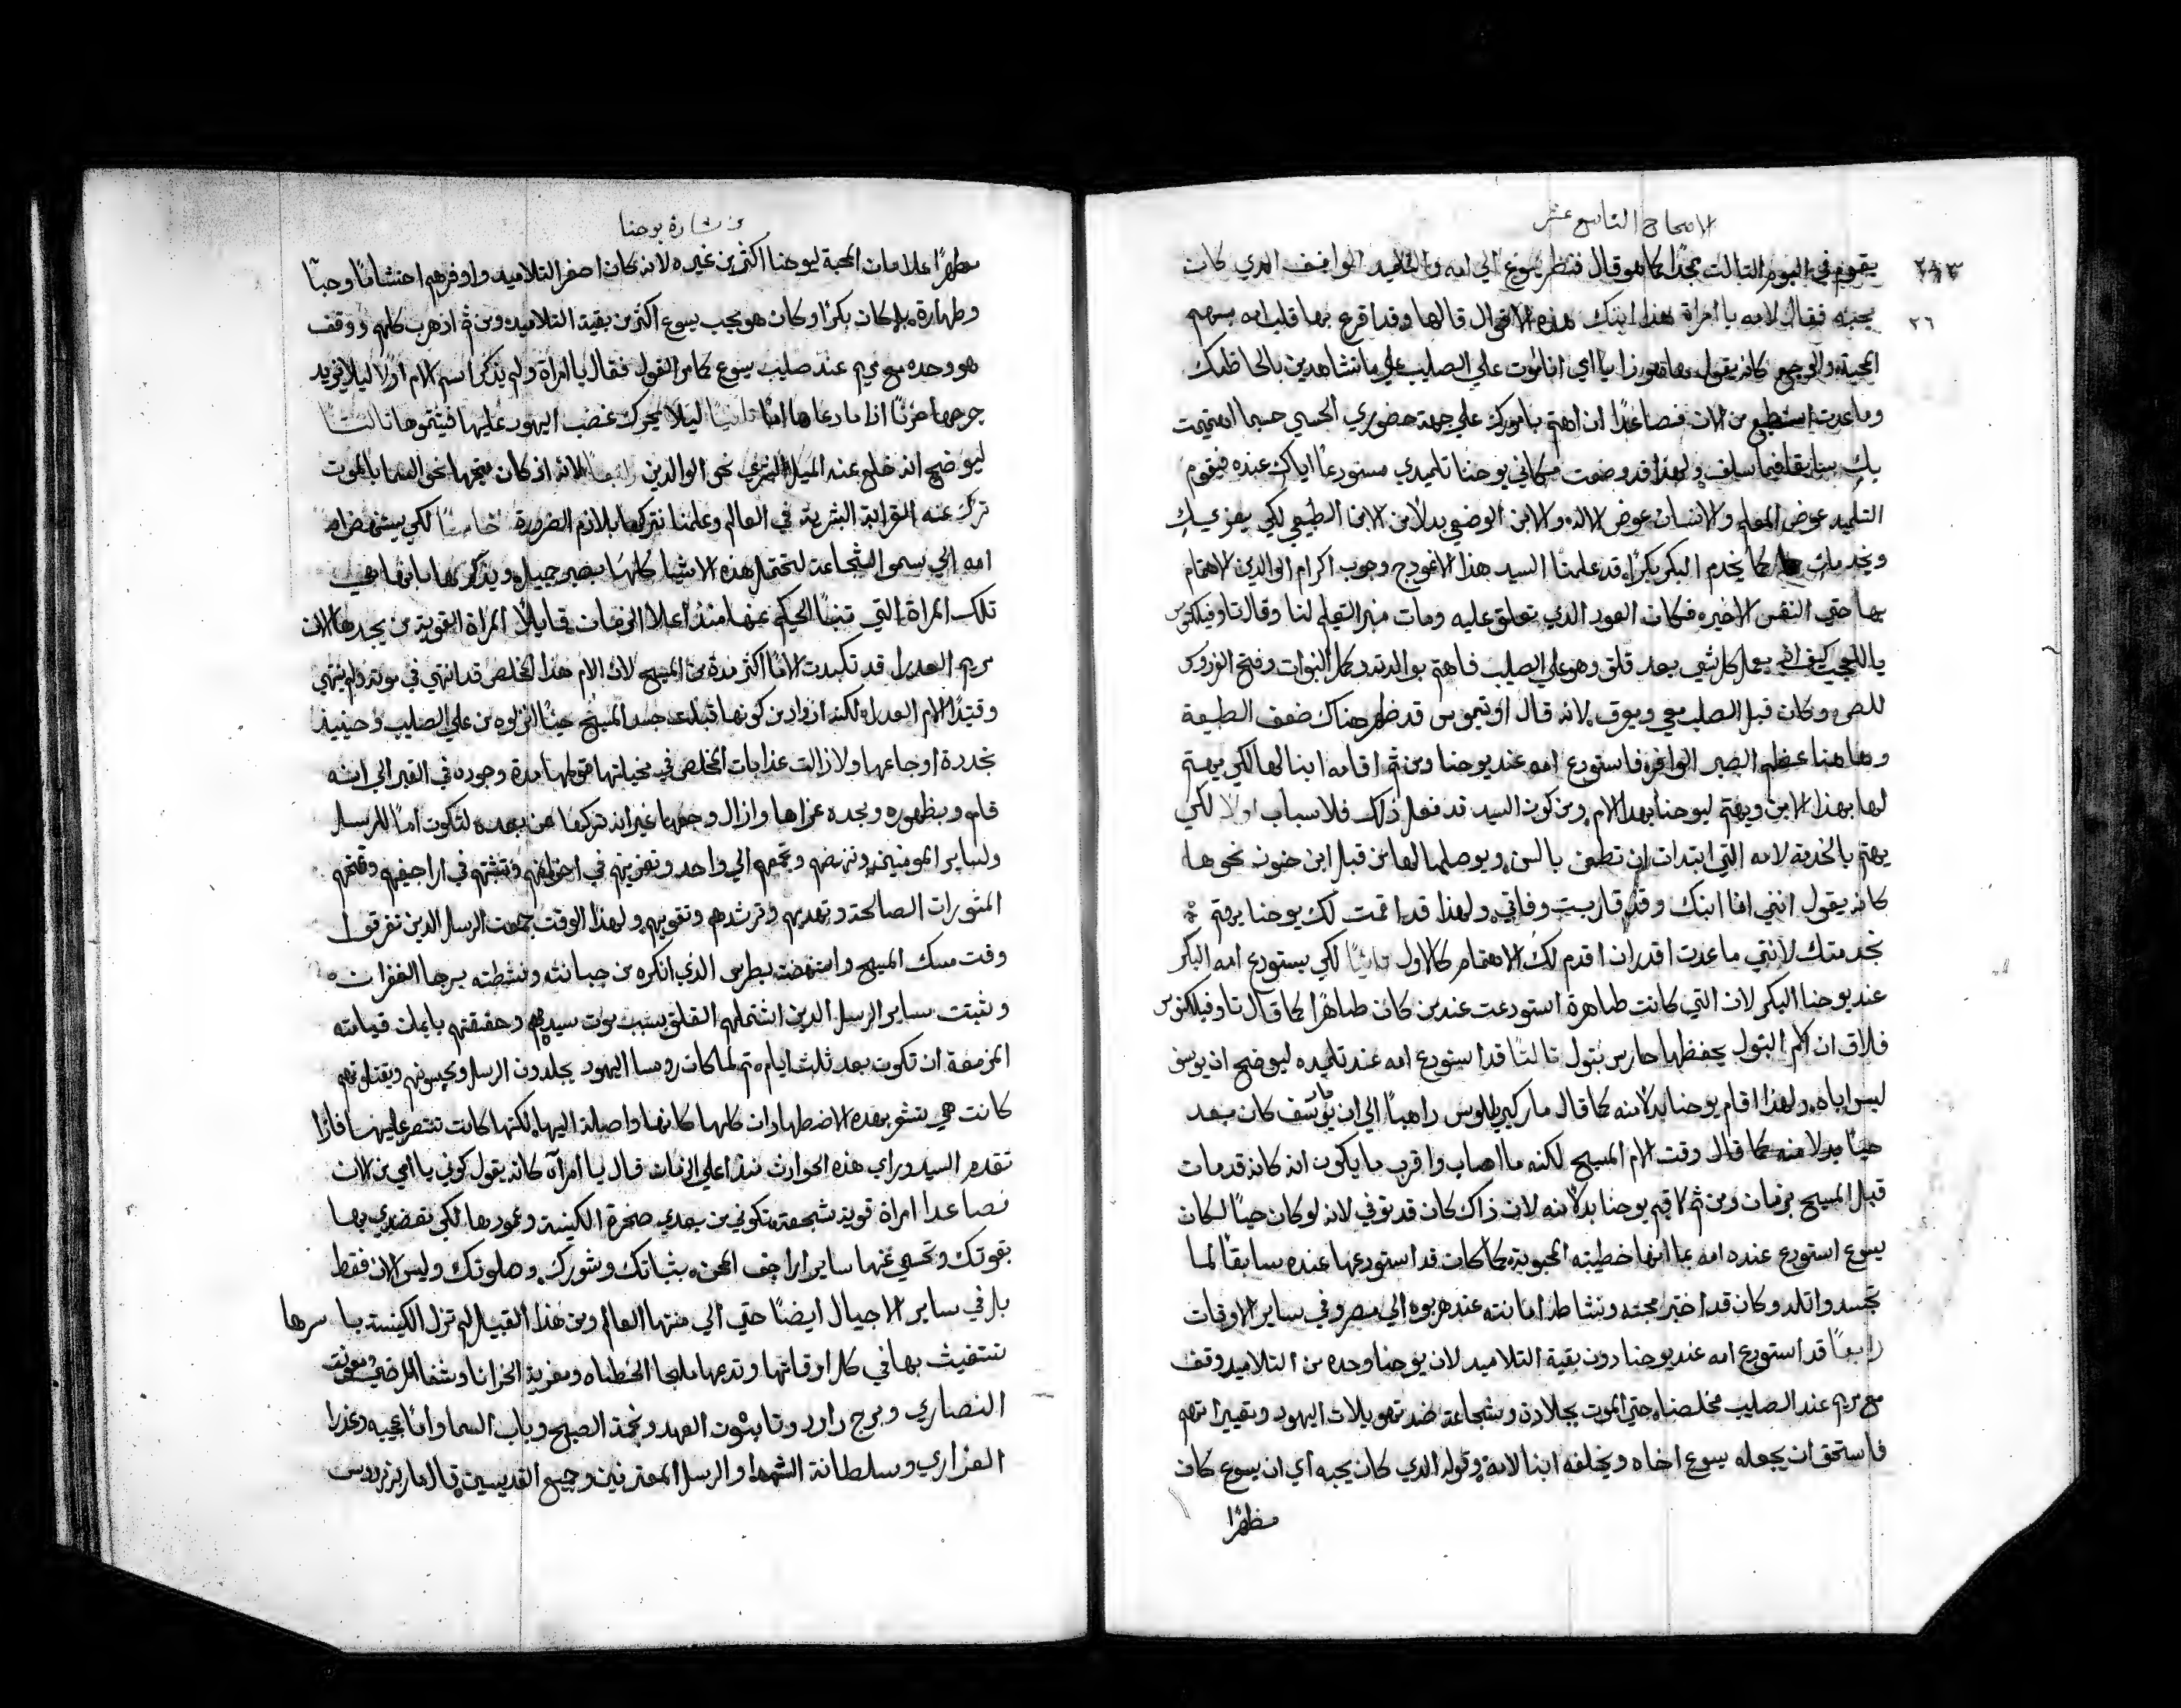 الاصحاح التاسع عشر
٢٨٣
يقوم في اليوم التالت بمجدًا كما هو قال فنظر يسوع الي امه والتلاميد الواقف الدي كان
٢٦
يحبه فقال لامه يا امراة هدا ابنك هده الاقوال قالها وقد اقرع بها قلب امه بسهم
المحبة والوجع كانه يقول بها هوذا يا امي انا اموت علي الصليب علي ما تشاهدين بالحاظك
وما عدت استطيع من الان فصاعدًا ان اهتم بامورك علي جهة حضوري الحسي حسبما اهتميت
بك سابقا فيما سلف ولهدا قد وضعت مكاني يوحنا تلميدي مستودعًا اياك عنده فيقوم
التلميد عوض المعلم والانسان عوض الاله والابن الوضعي بدلًا من الابن الطبيعي لكي يعزيك
ويخدمك كما يخدم البكر بكرًا قد علمنا السيد هدا الانمودج وجوب اكرام الوالدين الاهتمام
بها حتي النفس الاخيره فكان العود الدي تعلق عليه ومات منبر التعليم لنا وقال تاوفيلكتوس
يا للعجب كيف انه يعمل كل شي بعد قلق وهو علي الصليب فاهتم بوالدته وكمل النبوات وفتح الفردوس
للص وكان قبل الصلب وبعرق لانه قال اوتيموس قد ظهر هناك ضعف الطبيعة
وهاهنا عظم الصبر الوافره فاستودع امه عند يوحنا ومن ثم اقامه ابنا لها لكي يهتم
لها بهدا الابن ويهتم ليوحنا بهدا الام ومن كون السيد قد فعل دلك فلاسباب اولا لكي
يهتم بالخدمة لامه التي ابتدات ان تطعن بالسن ويوصلها لها من قبل ابن حنون نحوها
كانه يقول انني انا ابنك وقد قاربت وفاتي ولهدا قد اقمت لك يوحنا يهتم
بخدمتك لانني ما عدت اقدر ان اقدم لك الاهتمام كالاول ثانيًا لكي يستودع امه البكر
عند يوحنا البكر لان التي كانت طاهرة استودعت عند من كان طاهرًا كما قال تاوفيلكتوس
فلاق ان الام البتول يحفظها حارس بتول ثالثًا قد استودع امه عند تلميده ليوضح ان يوسف
ليس اباه ولهدا اقام يوحنا بدلًا منه كما قال مار كيرللوس راهبًا الي ان يوسف كان بعد
حيًا بدلا منه كما قال وقت الام المسيح لكنه ما اصاب واقرب ما يكون انه كانه قد مات
قبل المسيح بزمان ومن ثم اقيم يوحنا بدلًا منه لان داك كان قد توفي لانه لو كان حيًا لكان
يسوع استودع عنده امه بما انها خطيبته المحبوبة كما كان قد استودعها عنده سابقًا لما
تجسد واتلد وكان قد اختبر محبته ونشاطه امانته عند هربوه الي مصر وفي ساير الاوقات
رابعًا قد استودع امه عند يوحنا دون بقية التلاميد لان يوحنا وحده من التلاميد وقف
مع مريم عند الصليب مخلصناه حتي الموت بجلادة وشجاعة ضد تهويلات اليهود وتعييراتهم
فاستحق ان يجعله يسوع اخاه ويخلفه ابنا لامه وقوله الدي كان يحبه اي ان يسوع كان
مظهرًا
من بشارة يوحنا
مظهرًا علامات المحبة ليوحنا اكثر من غيره لانه كان اصغر التلاميد واوفرهم احتشامًا وحبًا
وطهارة بل كان بكرًا وكان هو يحب يسوع اكثر من بقية التلاميد ومن ثم اذ هرب كلهم ووقف
هو وحده مع مريم عند صليب يسوع كما مر القول فقال يا امراة ولم يذكر اسم الام اولًا ليلا يزيد
جرحها حزنًا اذا ما دعاها امًا ثانيًا ليلا يحرك غضب اليهود عليها فيشتموها ثالثًا
ليوضح انه خلع عنه الميل البشري نحو الوالدين رابعًا لانه اذ كان متجهًا نحو السما بالموت
ترك عنه القرابة البشرية في العالم وعلمنا نتركها بلازم الضرورة خامسًا لكي يستنهض
امه الي سمو الشجاعة لتحتمل هده الاشيا كلها بصبر جميل ويذكر لها بانها هي
تلك المراة التي تنبا الحكيم عنها منذ اعلا الزمان قايلًا المراة القوية من يجدها لان
مريم العدرا قد تكبدت الامًا اكثر مدة من المسيح لان الام هدا المخلص قد انتهي في موته ولم ينتهي
وقتيدًا الام العدراه لكنه ازداد من كونها قبلت جسد المسيح حينًا انزلوه من علي الصليب وحينيد
بجددة اوجاعها ولا زالت عدابات المخلص في مخيلتها طولها مدة وجوده في القبر الي انه
قام وبظهوره وبجده عزاها وازال وجعها غير انه تركها من بعده لتكون امًا للرسل
ولساير المومنين وننهضهم وتجمعهم الي واحد وتعزيهم في احزانهم وتثبتهم في اراجيفهم وتمنحهم
المشورات الصالحة وتهديهم وترشدهم وتقويهم ولهدا الوقت جمعت الرسل الدين تفرقوا
وقت مسك المسيح واستنهضت بطرس الدي انكره من جبانته ونشطته برجا الغفران
وثبتت ساير الرسل الدين اشتملهم القلق بسبب موت سيدهم وحققتهم بايمان قيامته
المزمعة ان تكون بعد ثلث ايام ثم لما كان روسا اليهود يجلدون الرسل ويحبسونهم ويقتلونهم
كانت هي تشعر بهده الاضطهادات كلها كانها واصلة اليها لكنها كانت تنتصر عليها فاذًا
تقدم السيد وراي هده الحوادث منذ اعلي الزمان قال يا امراة كانه يقول كوني يا امي من الان
فصاعدا امراة قوية شجعة وتكوني من بعدي صخرة الكنيسة وعمودها لكي تعضدي بها
بقوتك وتحمي عنها ساير اراجف المحن بثباتك وشورك وصلوتك وليس الان فقط
بل في ساير الاجيال ايضًا حتي الي منتها العالم ومن هدا القبيل لم تزل الكنيسة باسرها
تستغيث بها في كل اوقاتها وتدعها ملجا الخطاه ومعزية الحزانا وشفا المرضي ومعونة
النصاري وبرج داود وتابوت العهد ونجمة الصبح وباب السما وامًا عجيبه وعدرا
العداري وسلطانة الشهدا والرسل المعترفين وجميع القديسين قال مار برنردوس